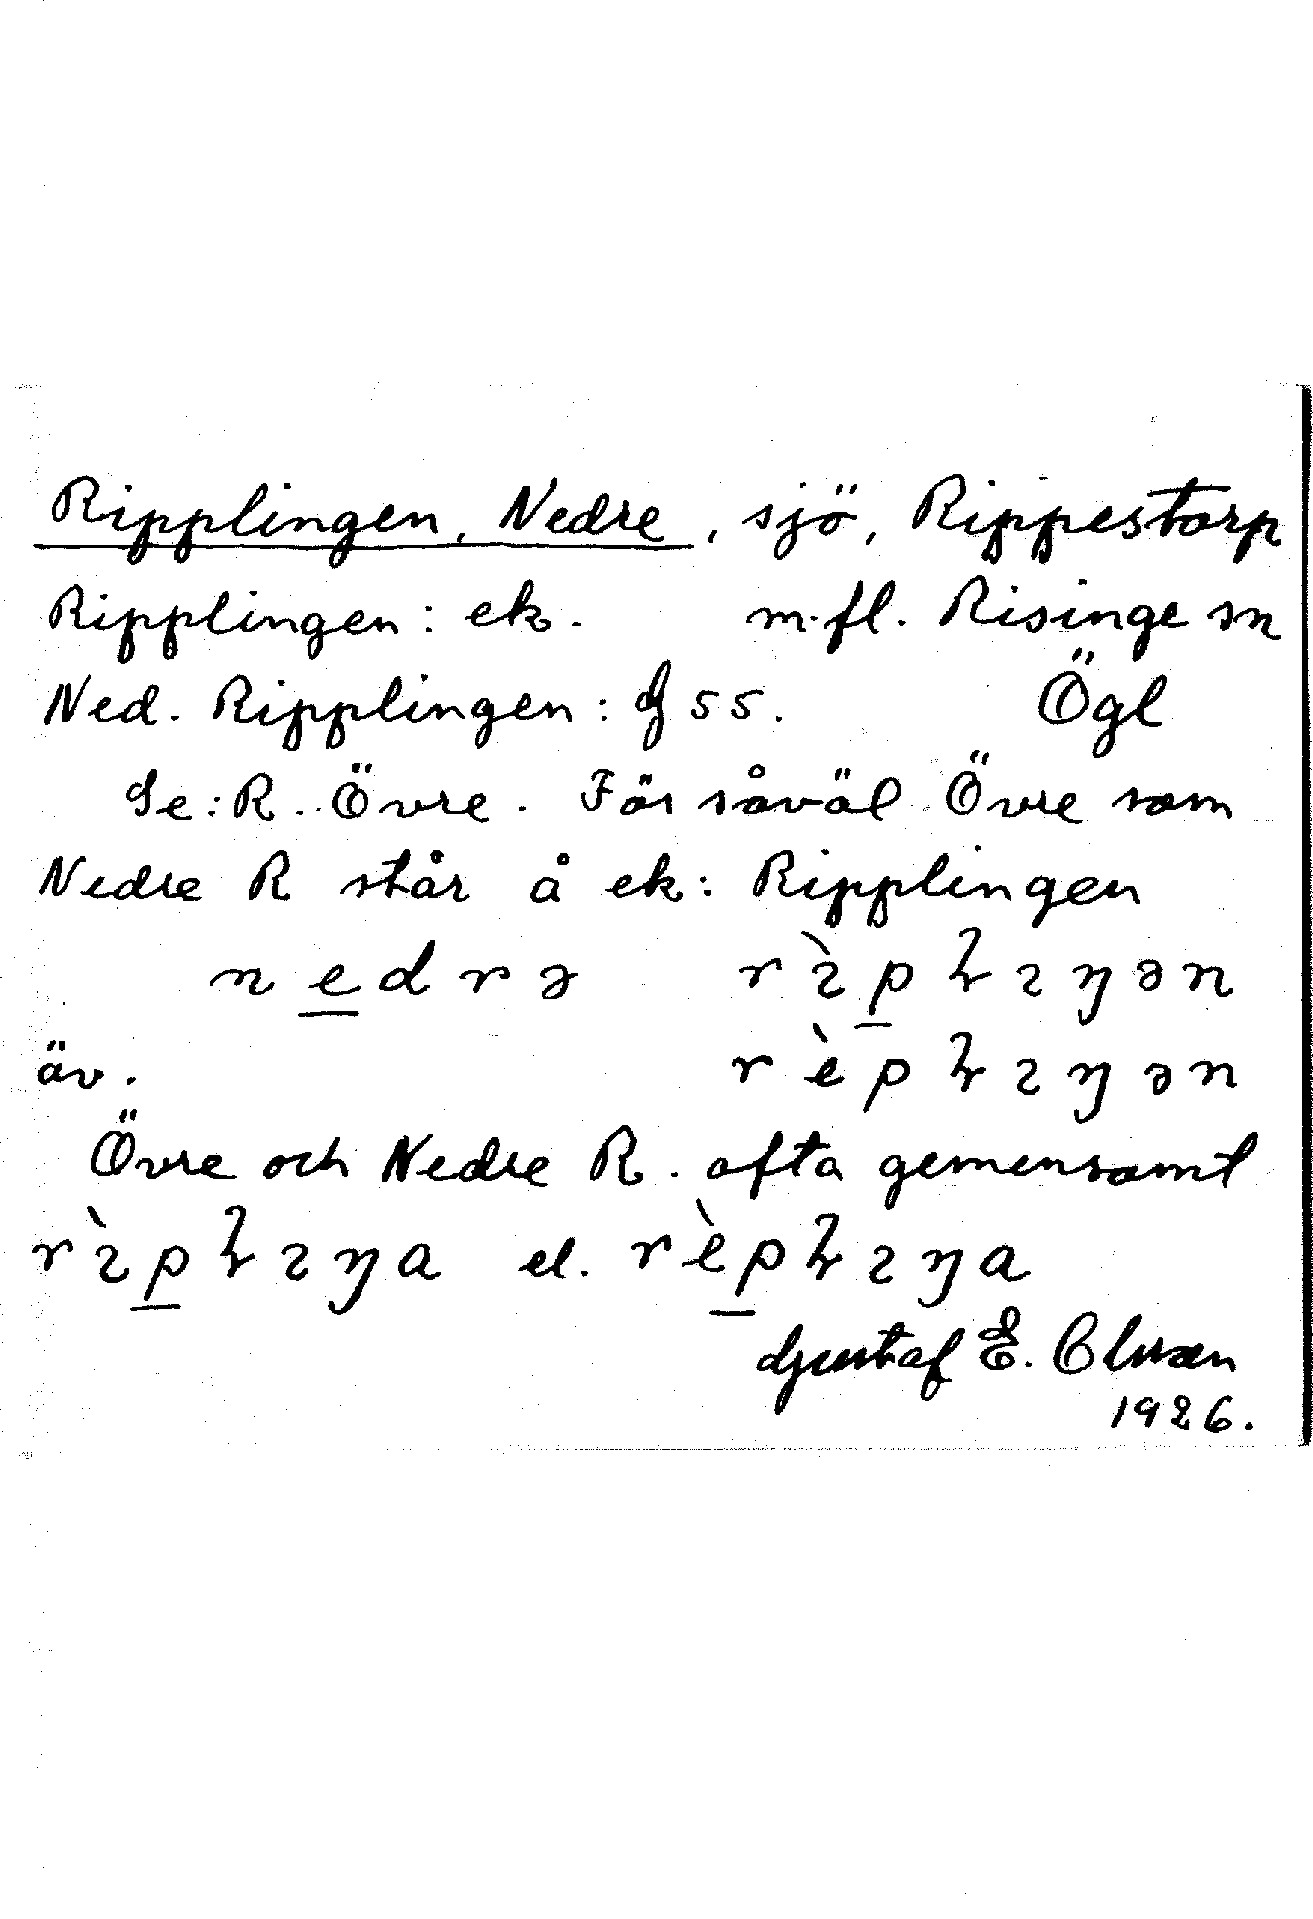 Ripplingen, Nedre, sjö, Rippestorp
Ripplingen: ek. m.fl. Risinge sn
Ned. Ripplingen: G 55. Ögl
Se: R. Övre. För såväl Övre som
Nedre R står å ek: Ripplingen
nedrə rìplıŋən
äv. rèplıŋən
Övre och Nedre R. ofta gemensamt
rìplıŋa el. rèplıŋa
Gustaf E. Olsson
1926.